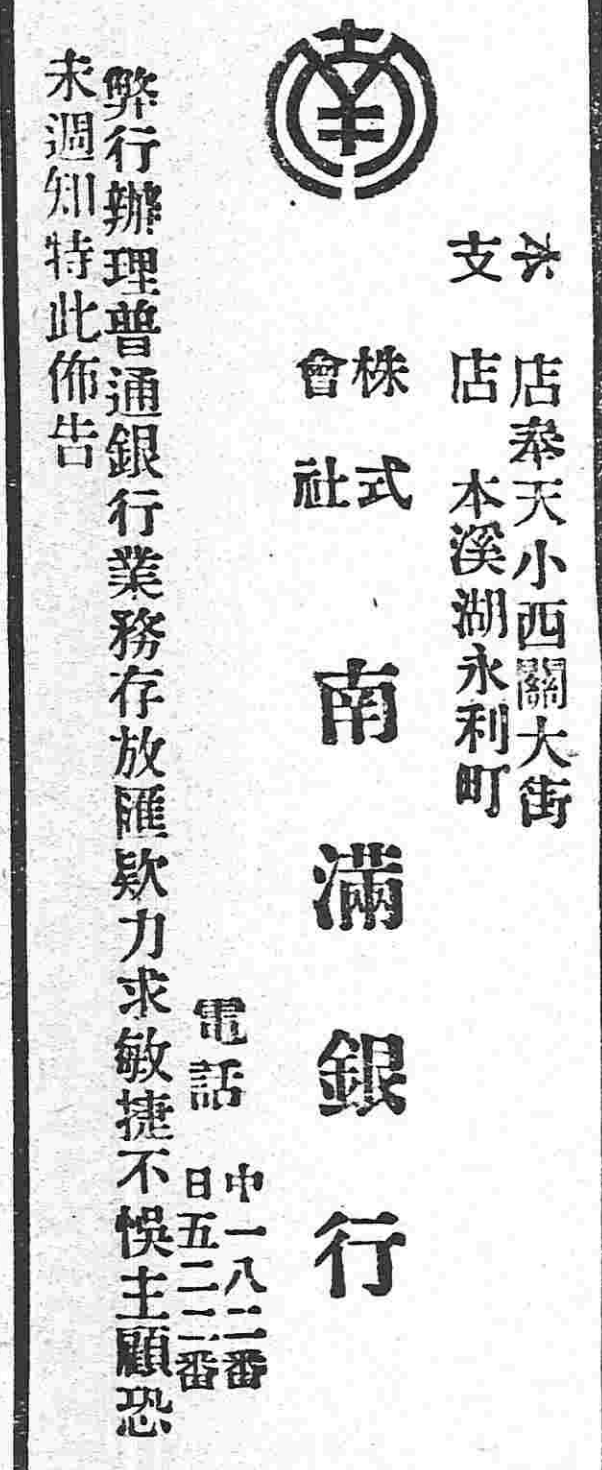 本店奉天小西關大街
支店本溪湖永利町
株式
會社
南滿銀行
電話
中一八二番
日五二二番
弊行辦理普通銀行業務存放匯欵力求敏捷不悞主顧恐
未週知特此佈告